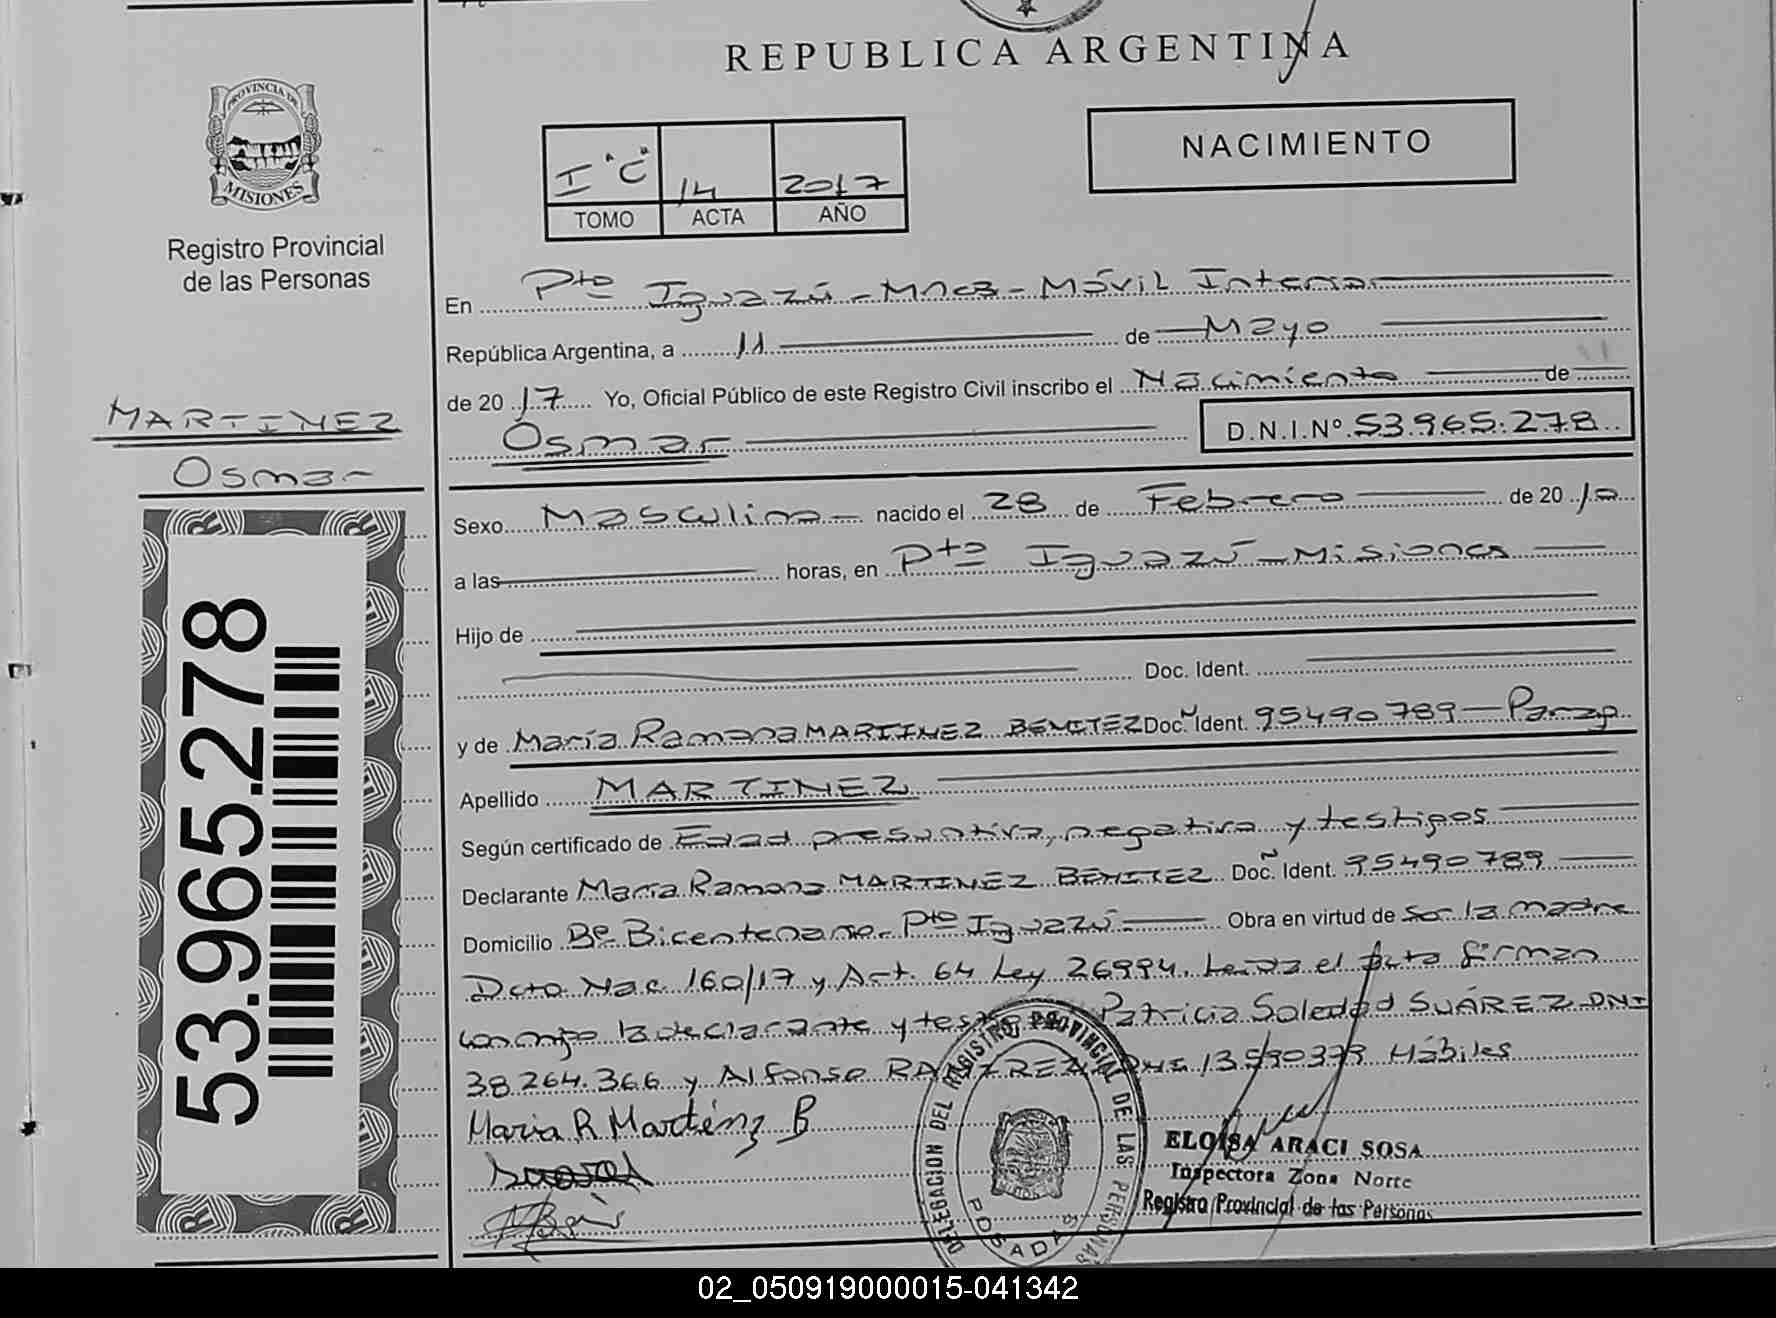 REPUBLICA ARGENTINA
PROVINCIA DE
MISIONES
Registro Provincial
de las Personas
I "C" 14 2017
TOMO ACTA AÑO
NACIMIENTO
En Pto Iguazú - Mnes - Móvil Interno
República Argentina, a 11 de Mayo
de 2017 Yo, Oficial Público de este Registro Civil inscribo el Nacimiento de
Osmar D.N.I.Nº 53.965.278
MARTINEZ
Osmar
Sexo Masculino nacido el 28 de Febrero de 2010
a las horas, en Pto Iguazú - Misiones
Hijo de
Doc. Ident.
y de María Ramona MARTINEZ BENITEZ Doc. Ident. 95490789 - Parag
Apellido MARTINEZ
Según certificado de Edad presuntiva, negativa y testigos
Declarante María Ramona MARTINEZ BENITEZ Doc. Ident. 95490789
Domicilio Bº Bicentenario - Pto Iguazú Obra en virtud de ser la madre
Dcto Nac 160/17 y Art. 64 Ley 26994. Leída el acta firman
conmigo la declarante y Patricia Soledad SUÁREZ DNI
38.264.366 y Alfonso RAMIREZ DNI 13.590373 Hábiles
Maria R Martinez B
DELEGACION DEL REGISTRO PROVINCIAL DE LAS PERSONAS
POSADAS
ELOISA ARACI SOSA
Inspectora Zona Norte
Registro Provincial de las Personas
53.965.278
02_050919000015-041342